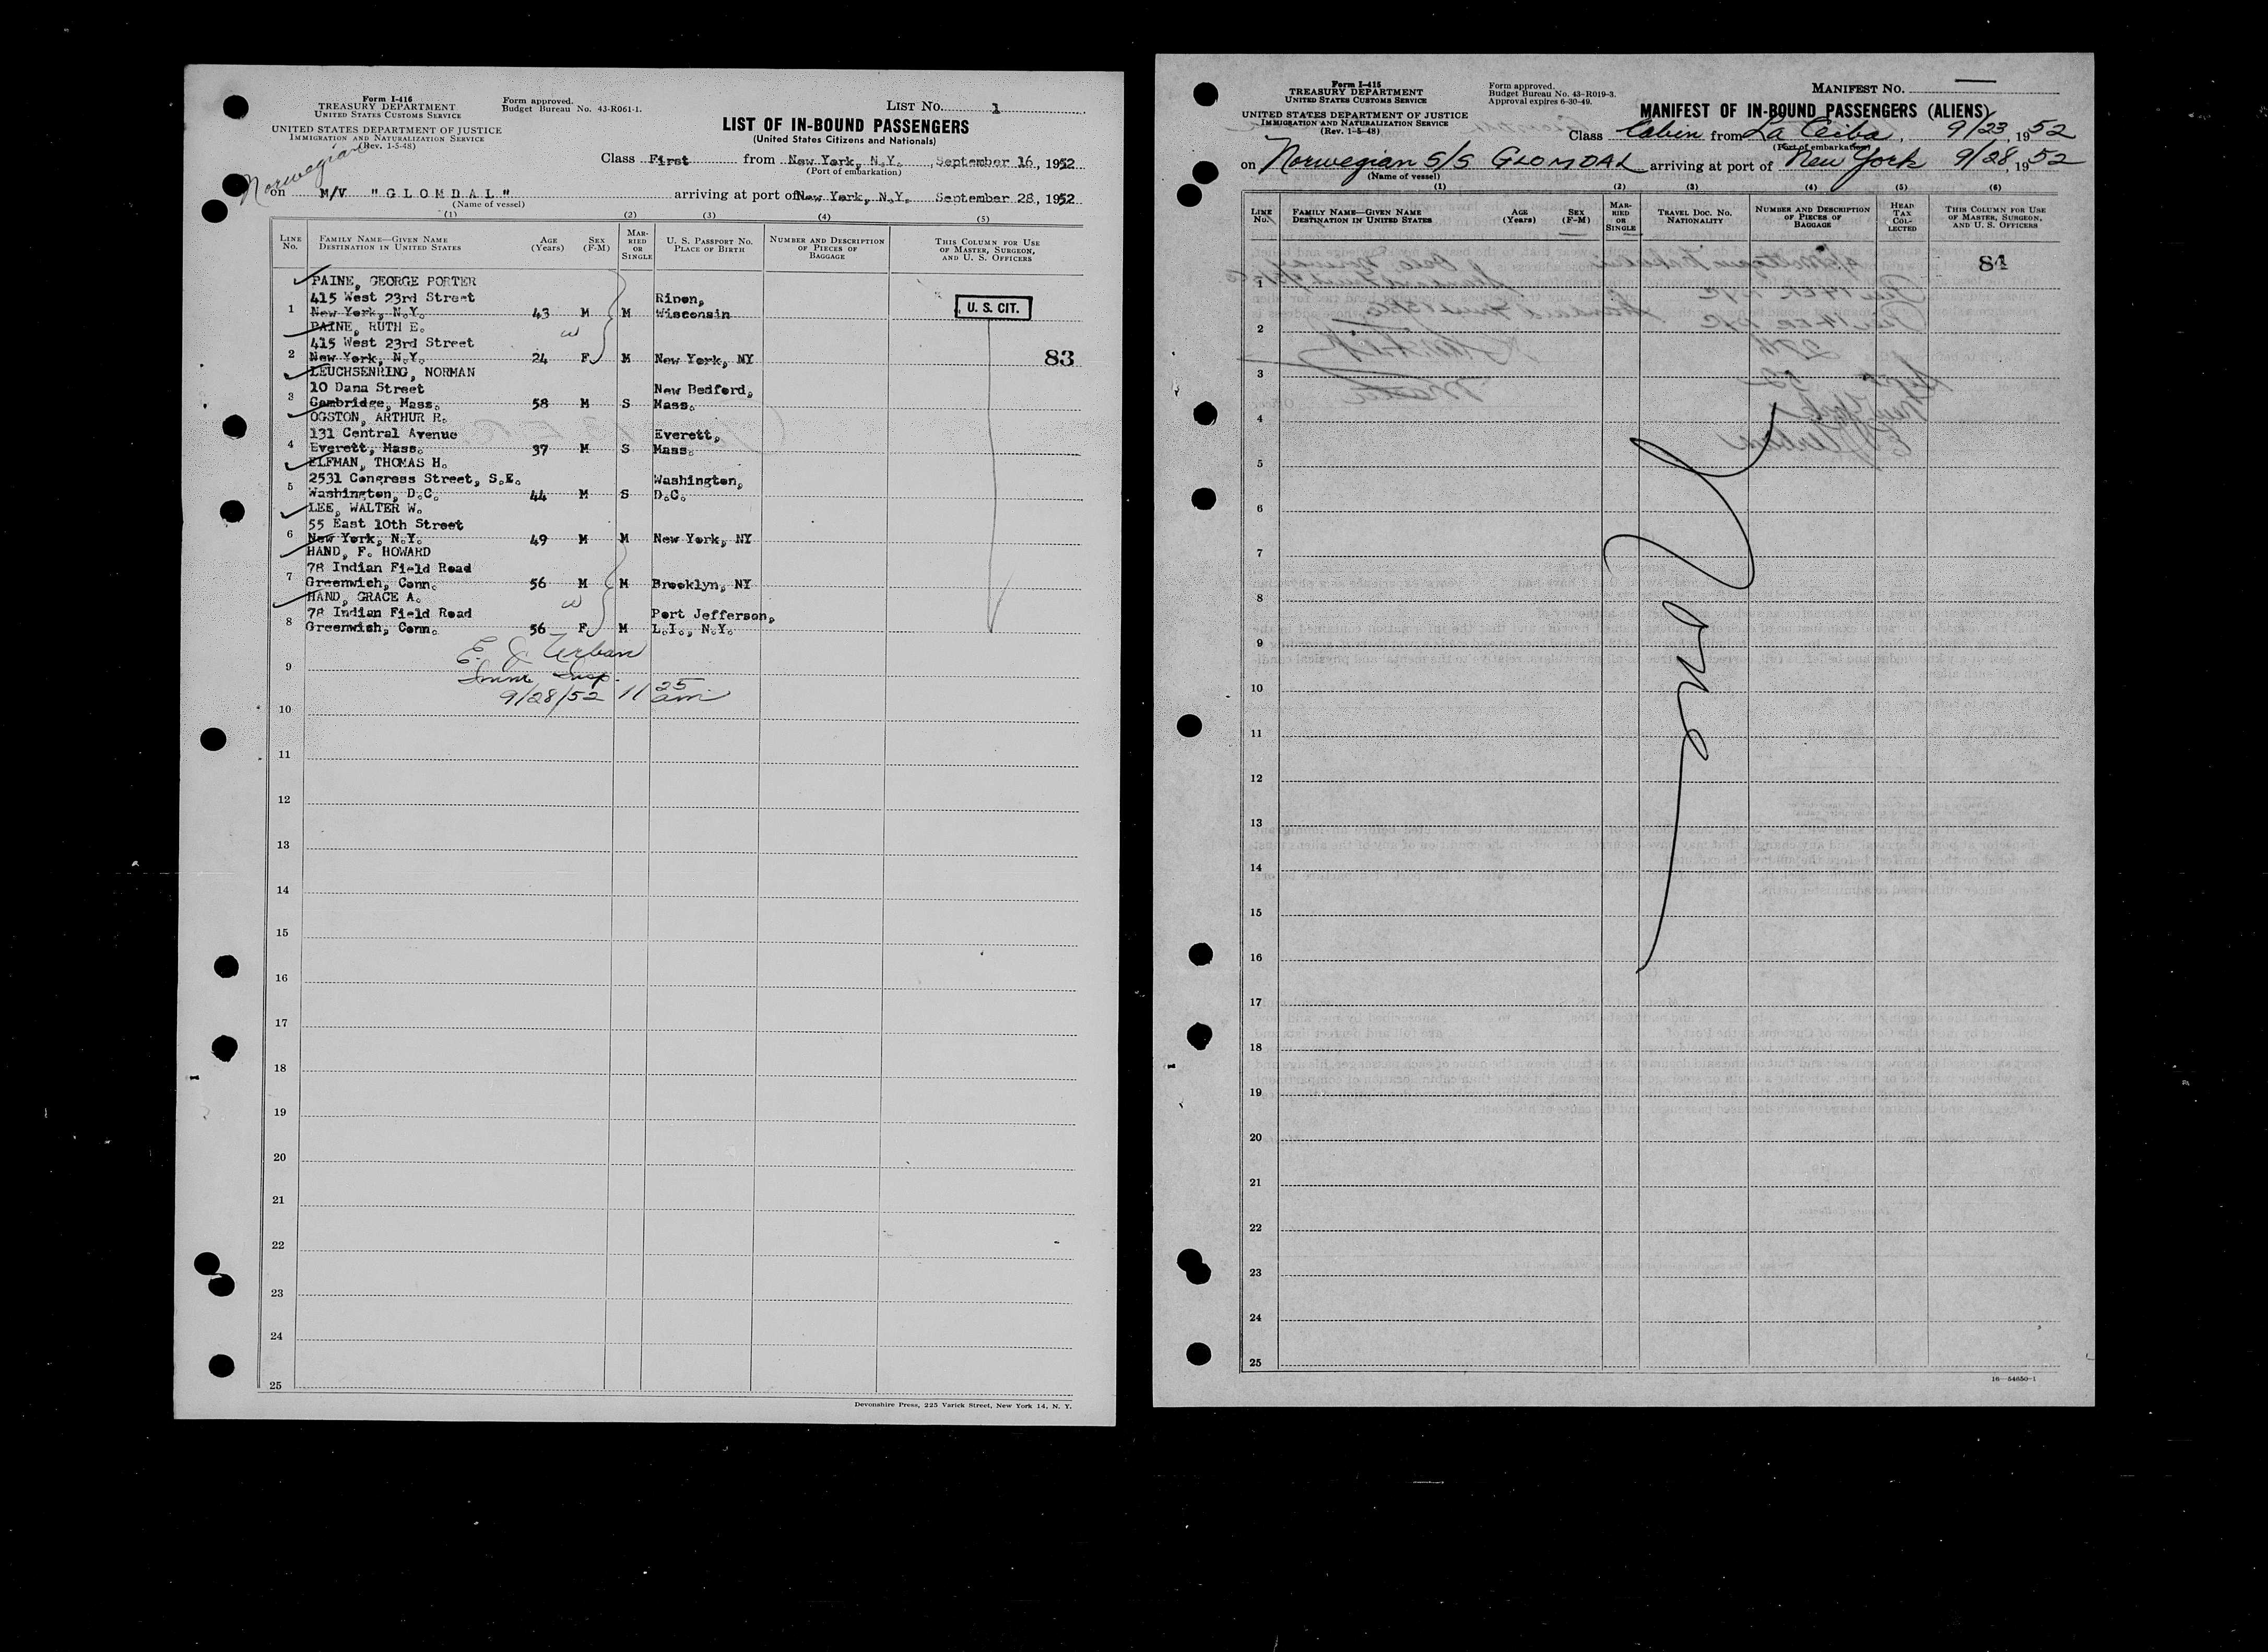 Form I-416
TREASURY DEPARTMENT
UNITED STATES CUSTOMS SERVICE
UNITED STATES DEPARTMENT OF JUSTICE
IMMIGRATION AND NATURALIZATION SERVICE
(Rev. 1-5-48)
Form approved.
Budget Bureau No. 43-R061-1.
LIST No. 1
LIST OF IN-BOUND PASSENGERS
(United States Citizens and Nationals)
Class First from New York, N.Y., September 16, 1952
(Port of embarkation)
Norwegian
on M/V "GLOMDAL" arriving at port of New York, N.Y. September 28, 1952
(Name of vessel)
(1) (2) (3) (4) (5)
LINE No. FAMILY NAME—GIVEN NAME DESTINATION IN UNITED STATES AGE (Years) SEX (F-M) MARRIED OR SINGLE U. S. PASSPORT No. PLACE OF BIRTH NUMBER AND DESCRIPTION OF PIECES OF BAGGAGE THIS COLUMN FOR USE OF MASTER, SURGEON, AND U. S. OFFICERS
PAINE, GEORGE PORTER
415 West 23rd Street Ripon,
1 New York, N.Y. 43 M M Wisconsin U. S. CIT.
PAINE, RUTH E. w
415 West 23rd Street
2 New York, N.Y. 24 F M New York, NY 83
LEUCHSENRING, NORMAN
10 Dana Street New Bedford,
3 Cambridge, Mass. 58 M S Mass.
OGSTON, ARTHUR R.
131 Central Avenue Everett,
4 Everett, Mass. 37 M S Mass.
ELFMAN, THOMAS H.
2531 Congress Street, S.E. Washington,
5 Washington, D.C. 44 M S D.C.
LEE, WALTER W.
55 East 10th Street
6 New York, N.Y. 49 M M New York, NY
HAND, F. HOWARD
78 Indian Field Road
7 Greenwich, Conn. 56 M M Brooklyn, NY
HAND, GRACE A. w
78 Indian Field Road Port Jefferson,
8 Greenwich, Conn. 56 F M L.I., N.Y.
E. J. Urban
9 Imm Insp.
9/28/52 11 25 am
10
11
12
13
14
15
16
17
18
19
20
21
22
23
24
25
Devonshire Press, 225 Varick Street, New York 14, N. Y.
Form I-415
TREASURY DEPARTMENT
UNITED STATES CUSTOMS SERVICE
UNITED STATES DEPARTMENT OF JUSTICE
IMMIGRATION AND NATURALIZATION SERVICE
(Rev. 1-5-48)
Form approved.
Budget Bureau No. 43-R019-3.
Approval expires 6-30-49.
MANIFEST No.
MANIFEST OF IN-BOUND PASSENGERS (ALIENS)
Class Cabin from La Ceiba, 9/23, 1952
(Port of embarkation)
on Norwegian S/S GLOMDAL arriving at port of New York 9/28, 1952
(Name of vessel)
(1) (2) (3) (4) (5) (6)
LINE No. FAMILY NAME—GIVEN NAME DESTINATION IN UNITED STATES AGE (Years) SEX (F-M) MARRIED OR SINGLE TRAVEL DOC. No. NATIONALITY NUMBER AND DESCRIPTION OF PIECES OF BAGGAGE HEAD TAX COLLECTED THIS COLUMN FOR USE OF MASTER, SURGEON, AND U. S. OFFICERS
84
1
2
3
4
5
6
7
8
9
10
11
12
13
14
15
16
17
18
19
20
21
22
23
24
25
16—54650-1